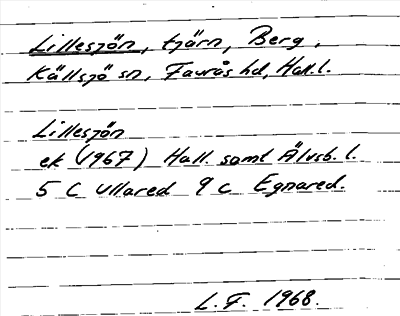 Lillesjön, tjärn, Berg,
Källsjö sn, Faurås hd, Hall. l.
Lillesjön
ek (1967) Hall. samt Älvsb. l.
5 C Ullared 9 c Egnared.
L. F. 1968.